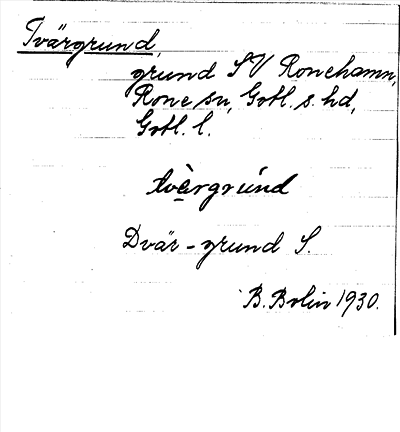 Tvärgrund,
grund SV Ronehamn,
Rone sn, Gotl. s. hd,
Gotl. l.
tvèrgrúnd
Dvär-grund S.
B. Bolin 1930.